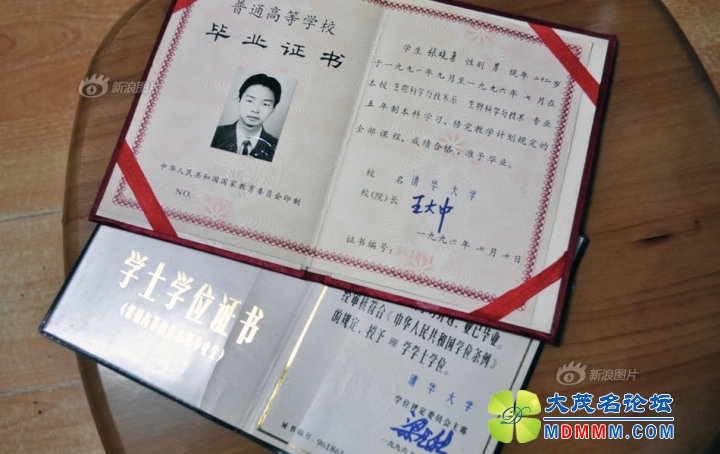 普通高等学校
毕业证书
中华人民共和国国家教育委员会印制
NO.
学生 张晓勇 性别 男 现年 二十二岁
于一九九一年九月至一九九六年七月在
本校 生物科学与技术系 生物科学与技术 专业
五年制本科学习，修完教学计划规定的
全部课程，成绩合格，准予毕业。
校 名 清华大学
校(院)长 王大中
一九九六年七月十日
证书编号:
学士学位证书
业已毕业。
经审核符合《中华人民共和国学位条例》
的规定，授予 理 学学士学位。
清华大学
学位评定委员会主席
证书编号:
一九九六
新浪图片
新浪图片
大茂名论坛
MDMMM.COM